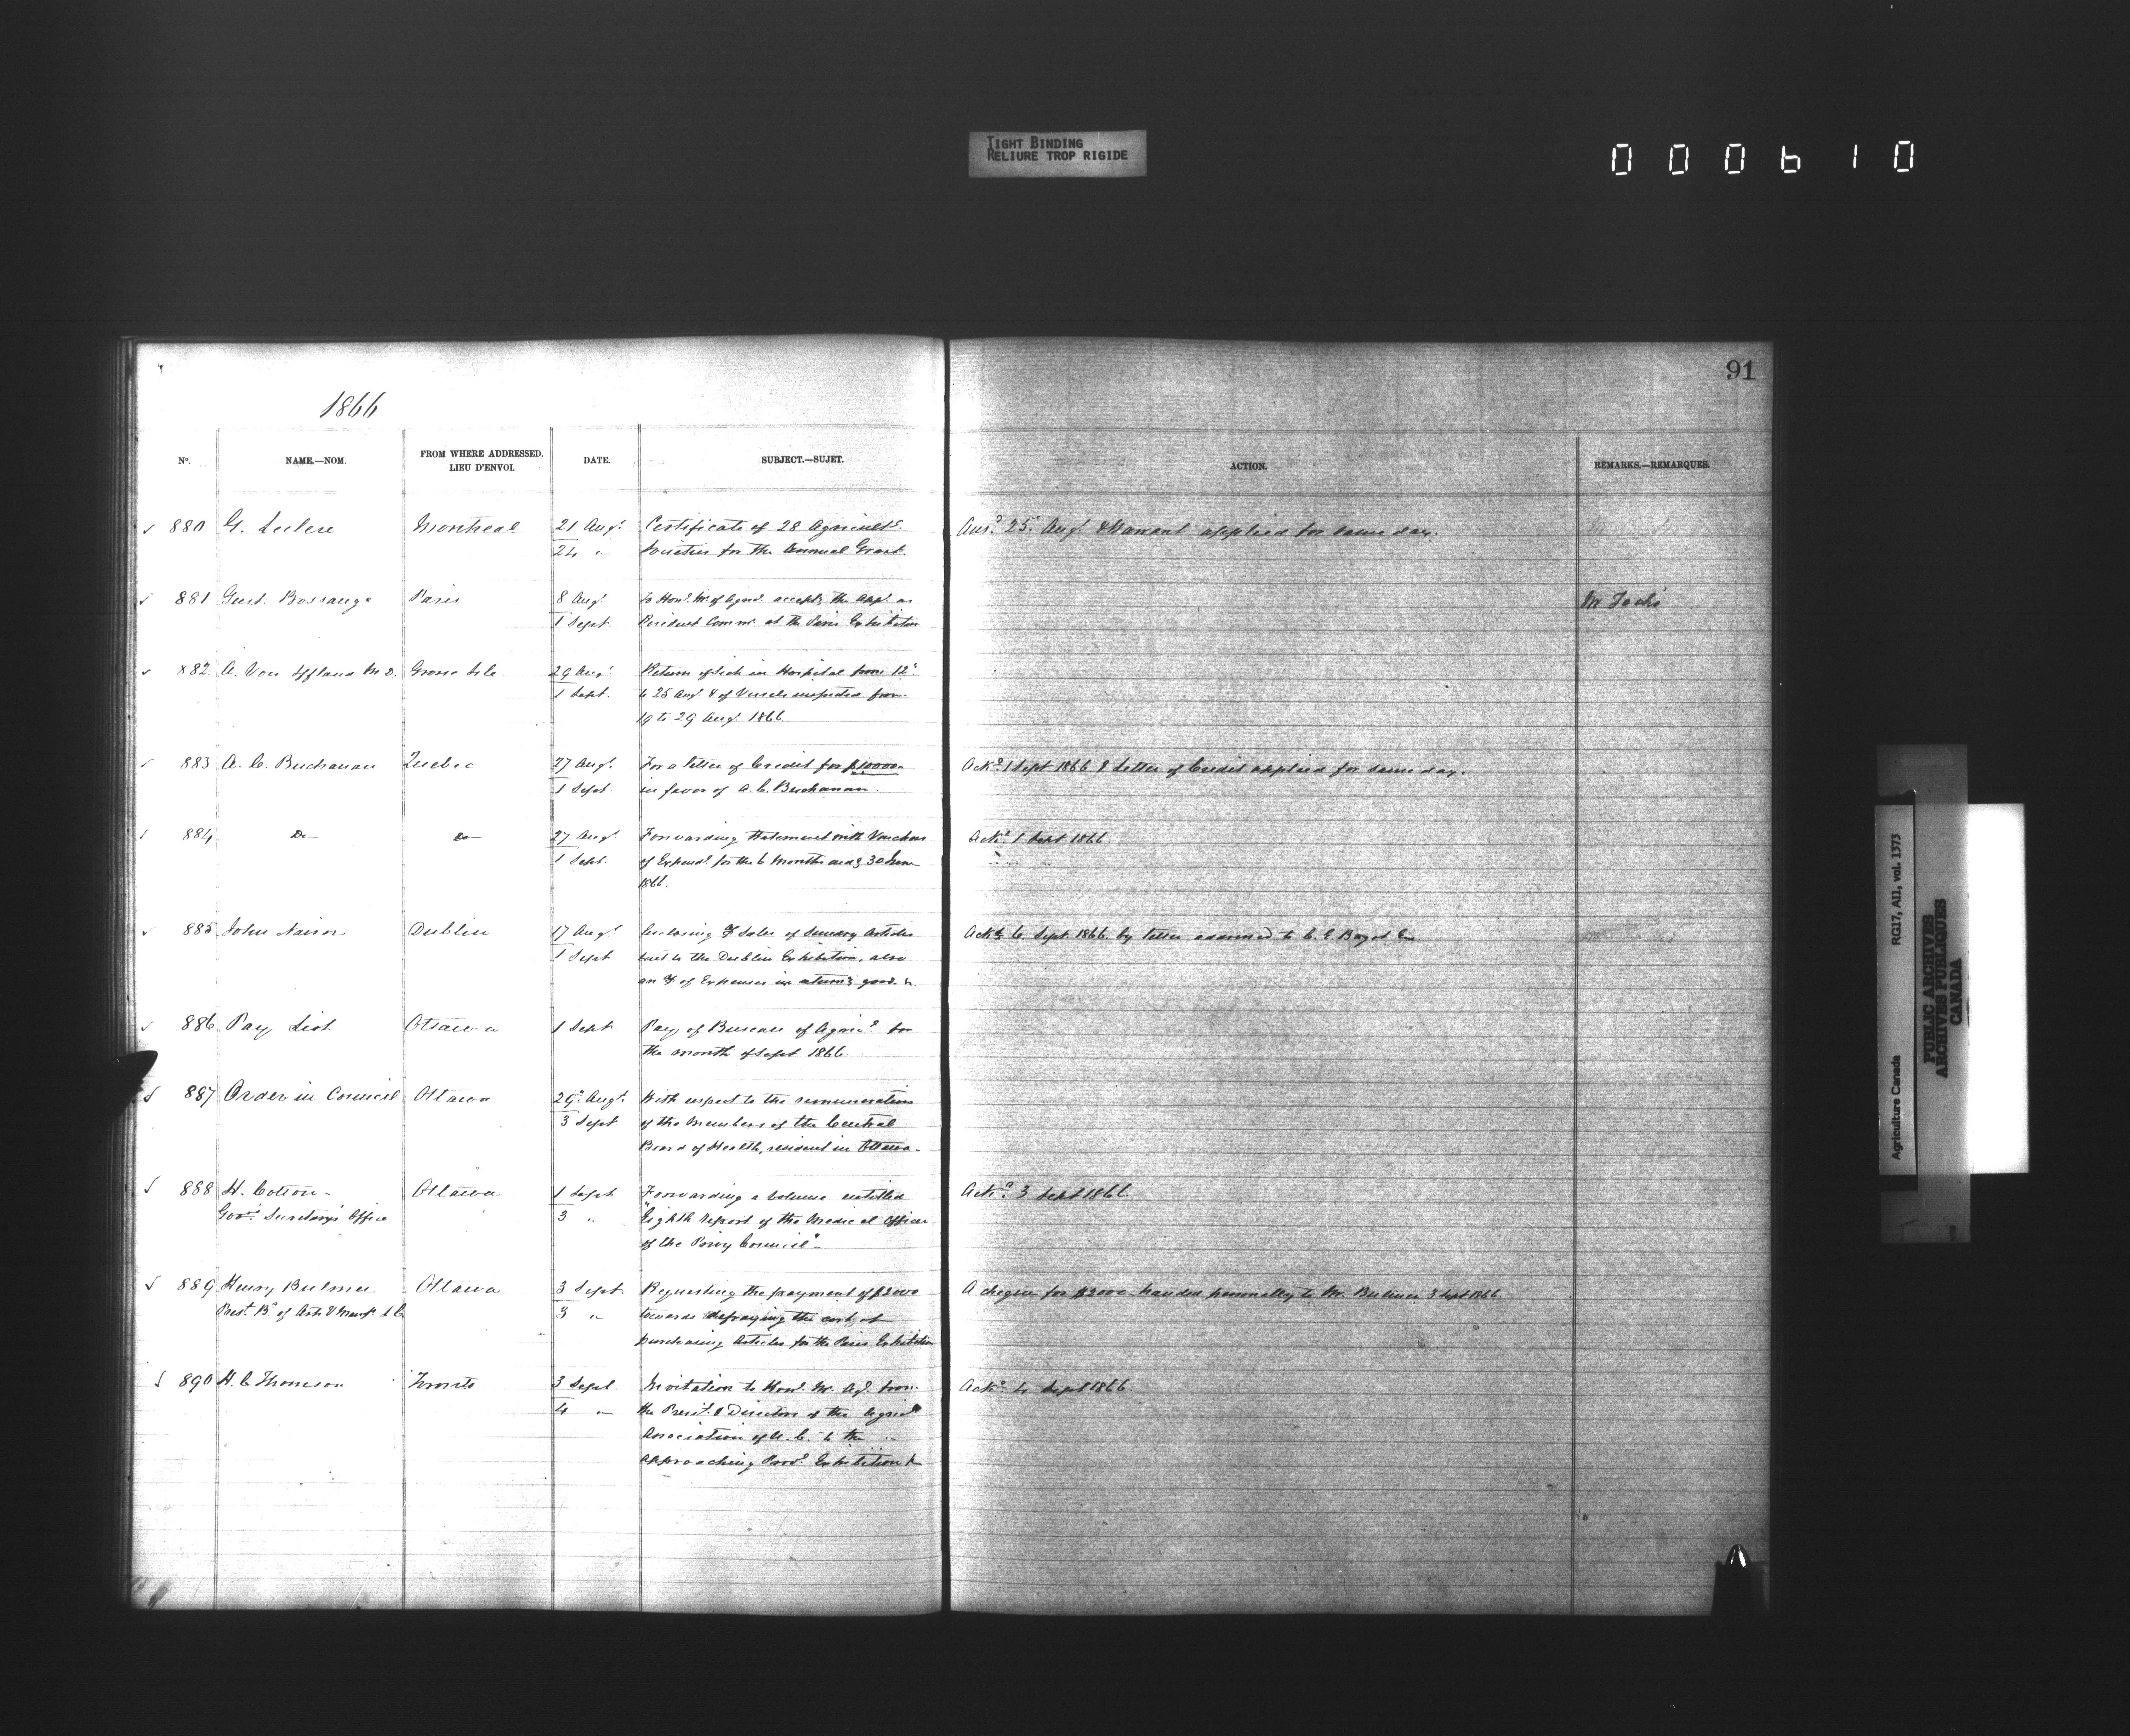 TIGHT BINDING
RELIURE TROP RIGIDE
000610
91
1866
No. NAME.—NOM. FROM WHERE ADDRESSED. LIEU D'ENVOI. DATE. SUBJECT.—SUJET. ACTION. REMARKS.—REMARQUES.
880 G. Leclere Montreal 21 Augt. Certificate of 28 Agricultl. Ansd. 25 Augt & Warrant applied for same day.
24 " Societies for the Annual Grant.
881 Gust. Bossange Paris 8 Augt To Honl. M. of Agricl. accepts the Appt. as
1 Sept. Resident Commr. at the Paris Exhibition
882 A. Von Iffland M.D. Grosse Isle 29 Augt Return of Sick in Hospital from 12
1 Sept. to 25 Augt & of Vessels inspected from
19 to 29 Augt. 1866
883 A. C. Buchanan Quebec 27 Augt. For a letter of Credit for $10000 Ackd. 1 Sept 1866 & Letter of Credit applied for same day.
1 Sept in favor of A. C. Buchanan.
884 Do Do 27 Augt. Forwarding Statement with Vouchers Ackd. 1 Sept 1866
1 Sept. of Expendr. for the 6 Months endg 30 June
1866.
885 John Nairn Dublin 17 Augt Enclosing a/c Sales of Sundry Articles Ackd 6 Sept. 1866. by letter addressed to C. E. Bagot
1 Sept sent to the Dublin Exhibition, also
an a/c of Expenses in returng goods &c.
886 Pay List Ottawa 1 Sept. Pay of Bureau of Agricl. for
the month of Sept 1866.
887 Order in Council Ottawa 29 Augt. With respect to the remuneration
3 Sept of the Members of the Central
Board of Health, resident in Ottawa.
888 H. Cotton Ottawa 1 Sept Forwarding a volume entitled Ackd. 3 Sept 1866.
Govr. Secretary's Office 3 " "Eighth Report of the Medical Officer
of the Privy Council"
889 Henry Bulmer Ottawa 3 Sept Requesting the payment of $2000 A cheque for $2000 handed personally to Mr. Bulmer 3 Sept 1866
Prest. Bd of Arts & Manufs L C. 3 " towards defraying the cost of
purchasing Articles for the Paris Exhibition
890 H. C Thomson Toronto 3 Sept Invitation to Honl. M. Ag. from Ackd. 4 Sept 1866.
4 " the Presit. & Directors of the Agricl
Association of U. C. to the
approaching Provl. Exhibition &c
Agriculture Canada RG17, AI1, vol. 1373
PUBLIC ARCHIVES
ARCHIVES PUBLIQUES
CANADA